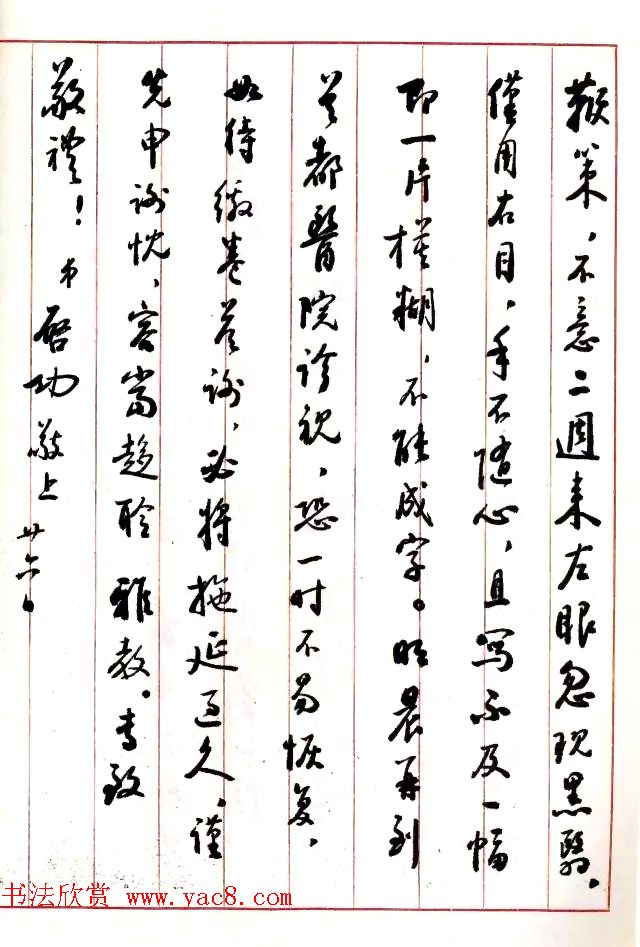 鞭策，不意二週来左眼忽现黑翳，
僅用右目，手不随心，且写不及一幅
即一片模糊，不能成字。明晨再到
首都醫院诊视，恐一时不易恢复，
如待缴卷答谢，必将拖延过久，谨
先申谢忱，容当趋聆雅教。专致
敬禮！弟启功敬上 廿六日
书法欣赏 www.yac8.com